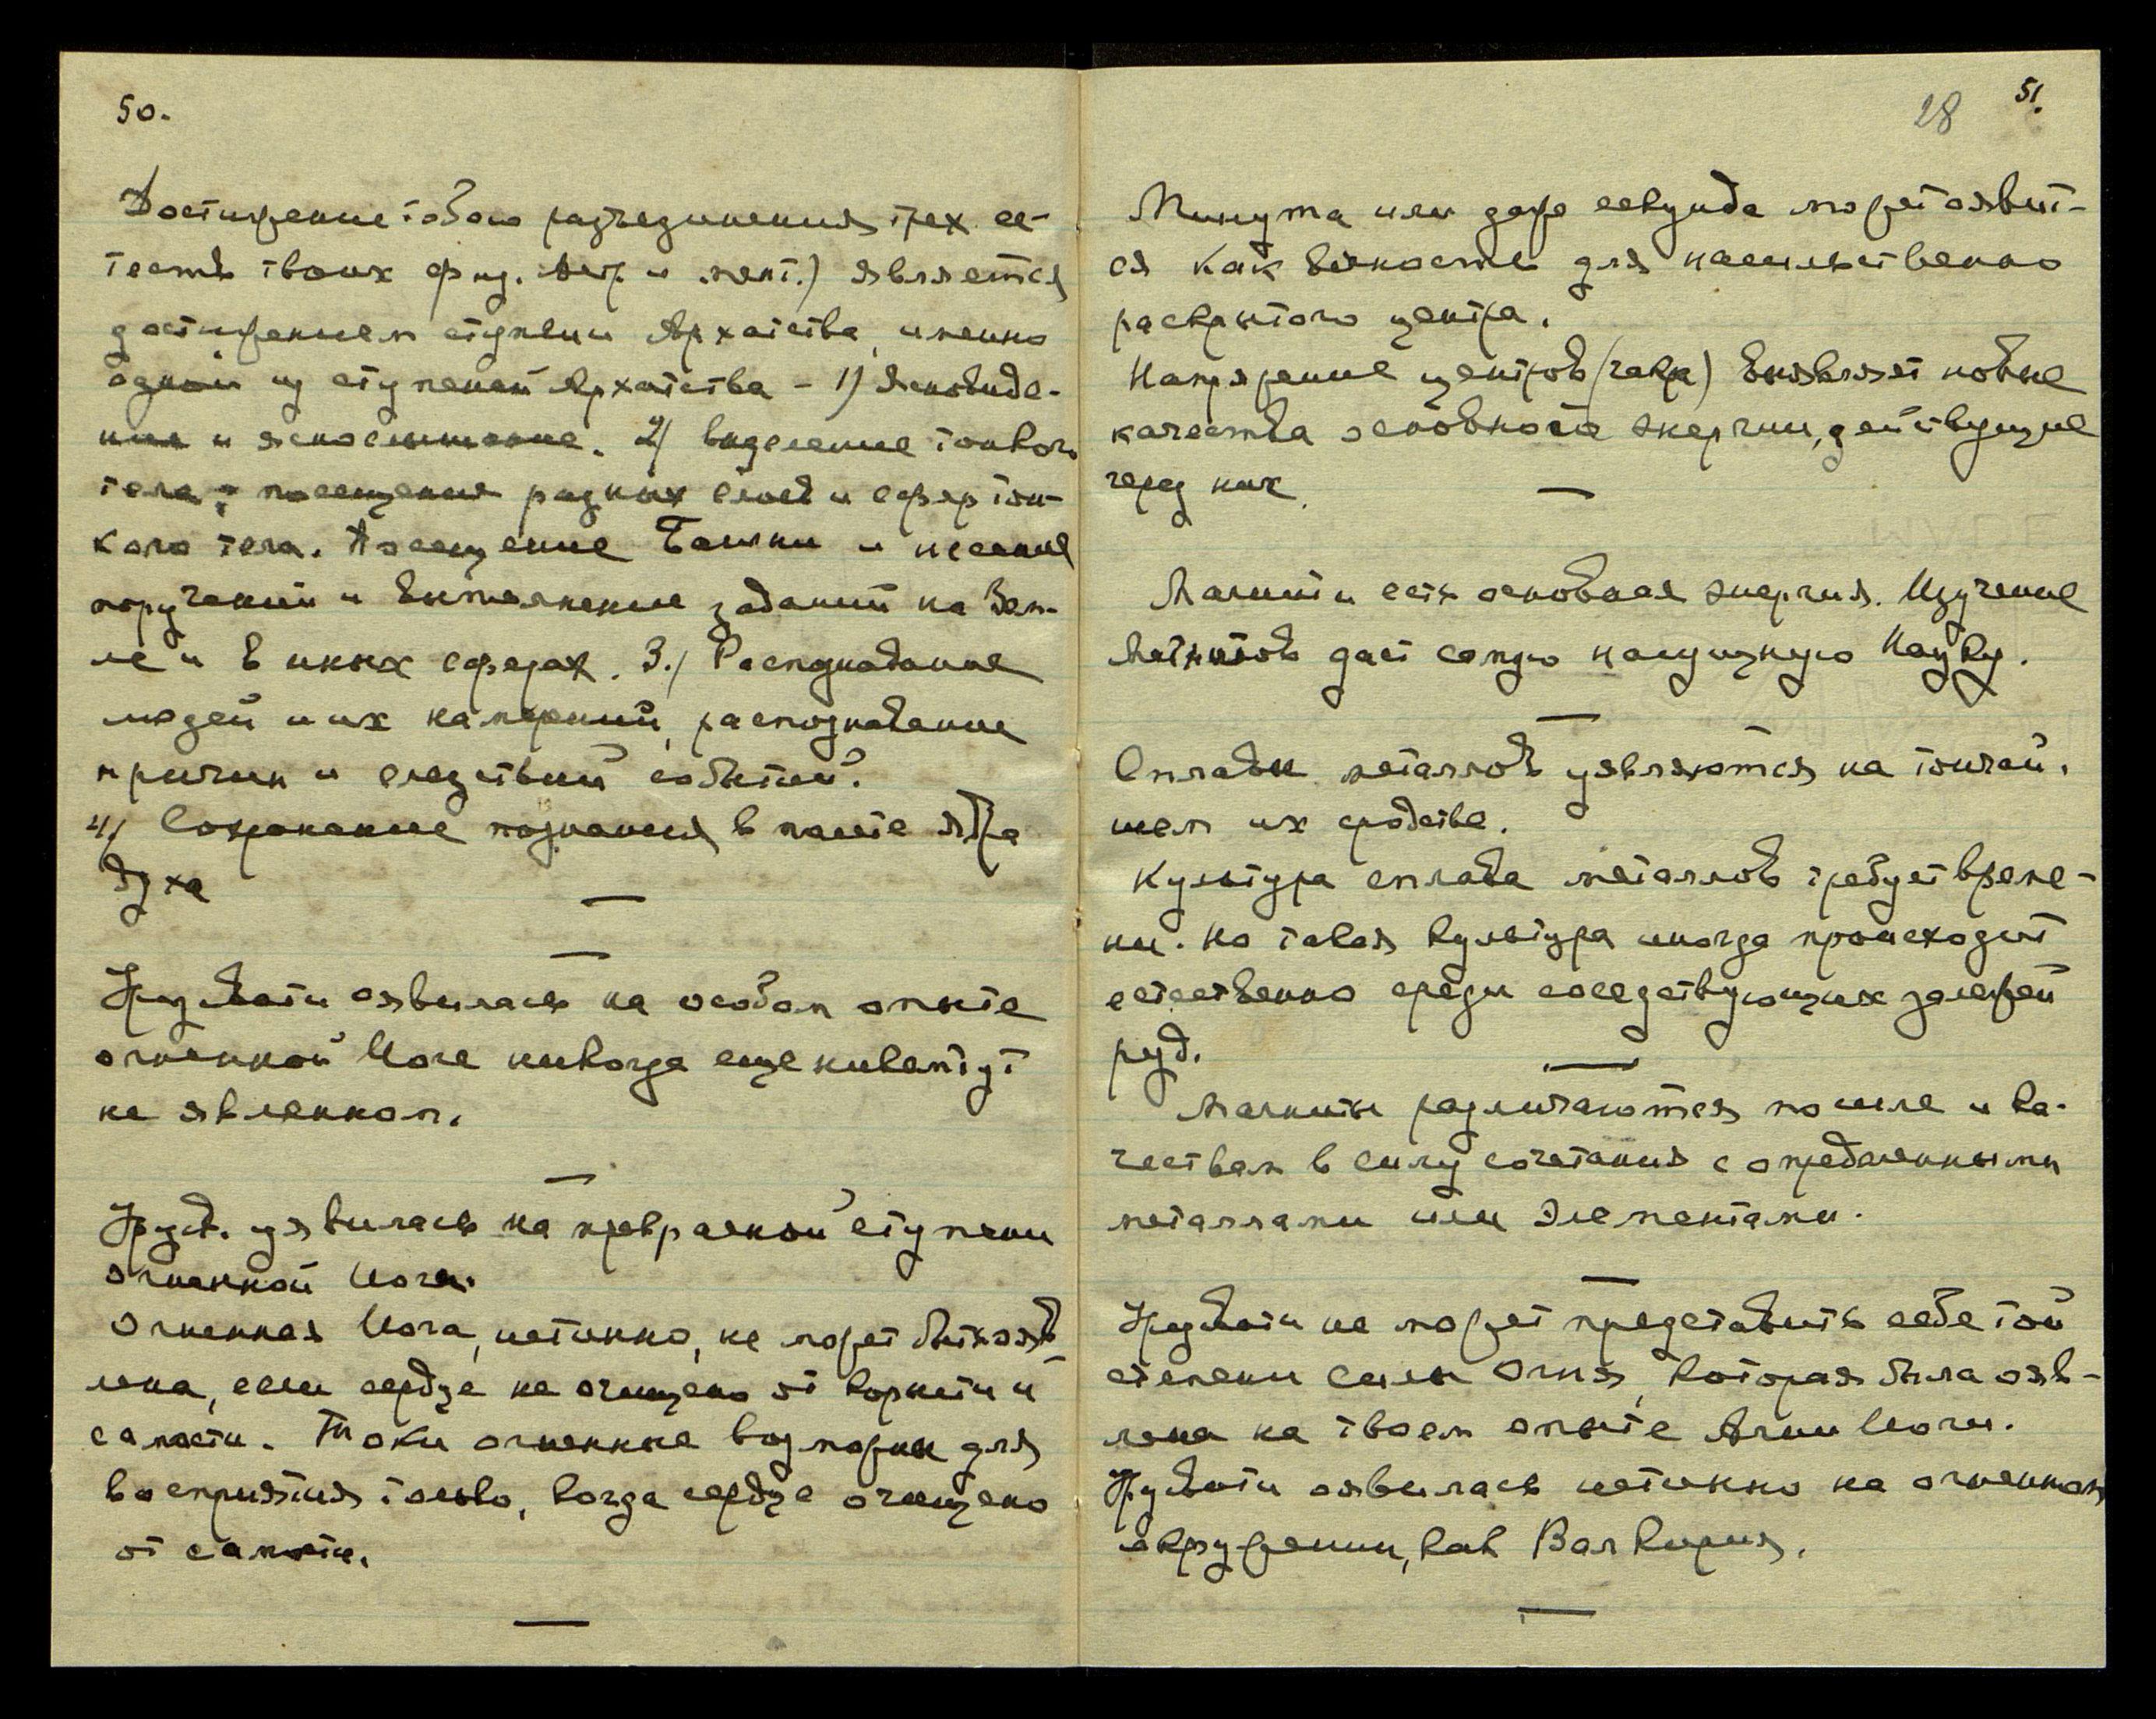 50.
Достижение тобою разъединения трех ес-
теств твоих физ. астр. и мент.) является
достижением ступени Архатства, именно
одной из ступеней Архатства – 1) Яснобиде-
ния и яснослышание. 2) выделение тонкого
тела; посещения разных слоев и сфер тон-
кого тела. Посещение Башни и несение
поручений и выполнение заданий на Зем-
ле и в иных сферах. 3.) Распознавание
людей и их намерений, распознавание
причин и следствий событий.
4) Сохранение познания в памяти ядра
духа
Урусвати оявилась на особом опыте
огненной Йоге никогда еще никем тут
не явленном.
Урусв. уявилась на прекрасной ступени
огненной Йоги.
Огненная Йога, истинно, не может быть явв-
лена, если сердце не очищено от корысти и
самости. Токи огненные возможны для
восприятия только, когда сердце очищено
от самости.
28 51.
Минута или даже секунда может оявит-
ся как вечность для насильственно
раскрытого центра.
Напряжение центров (чакр) выявляет новые
качества основной энергии, действующие
через них.
Магнит и есть основная энергия. Изучение
Магнитов даст самую насущную Науку.
Сплавы металлов уявляются на тончай-
шем их сродстве.
Культура сплава металлов требует време-
ни. Но такая культура иногда происходит
естественно среди соседствующих залежей
руд.
Магниты различаются по силе и ка-
чествам в силу сочетания с определенными
металлами или элементами.
Урусвати не может представить себе той
степени силы Огня, которая былаояв-
лена на твоем опыте Агни Йоги.
Урусвати оявилась истинно на огненном
окружении, как Валкирия.